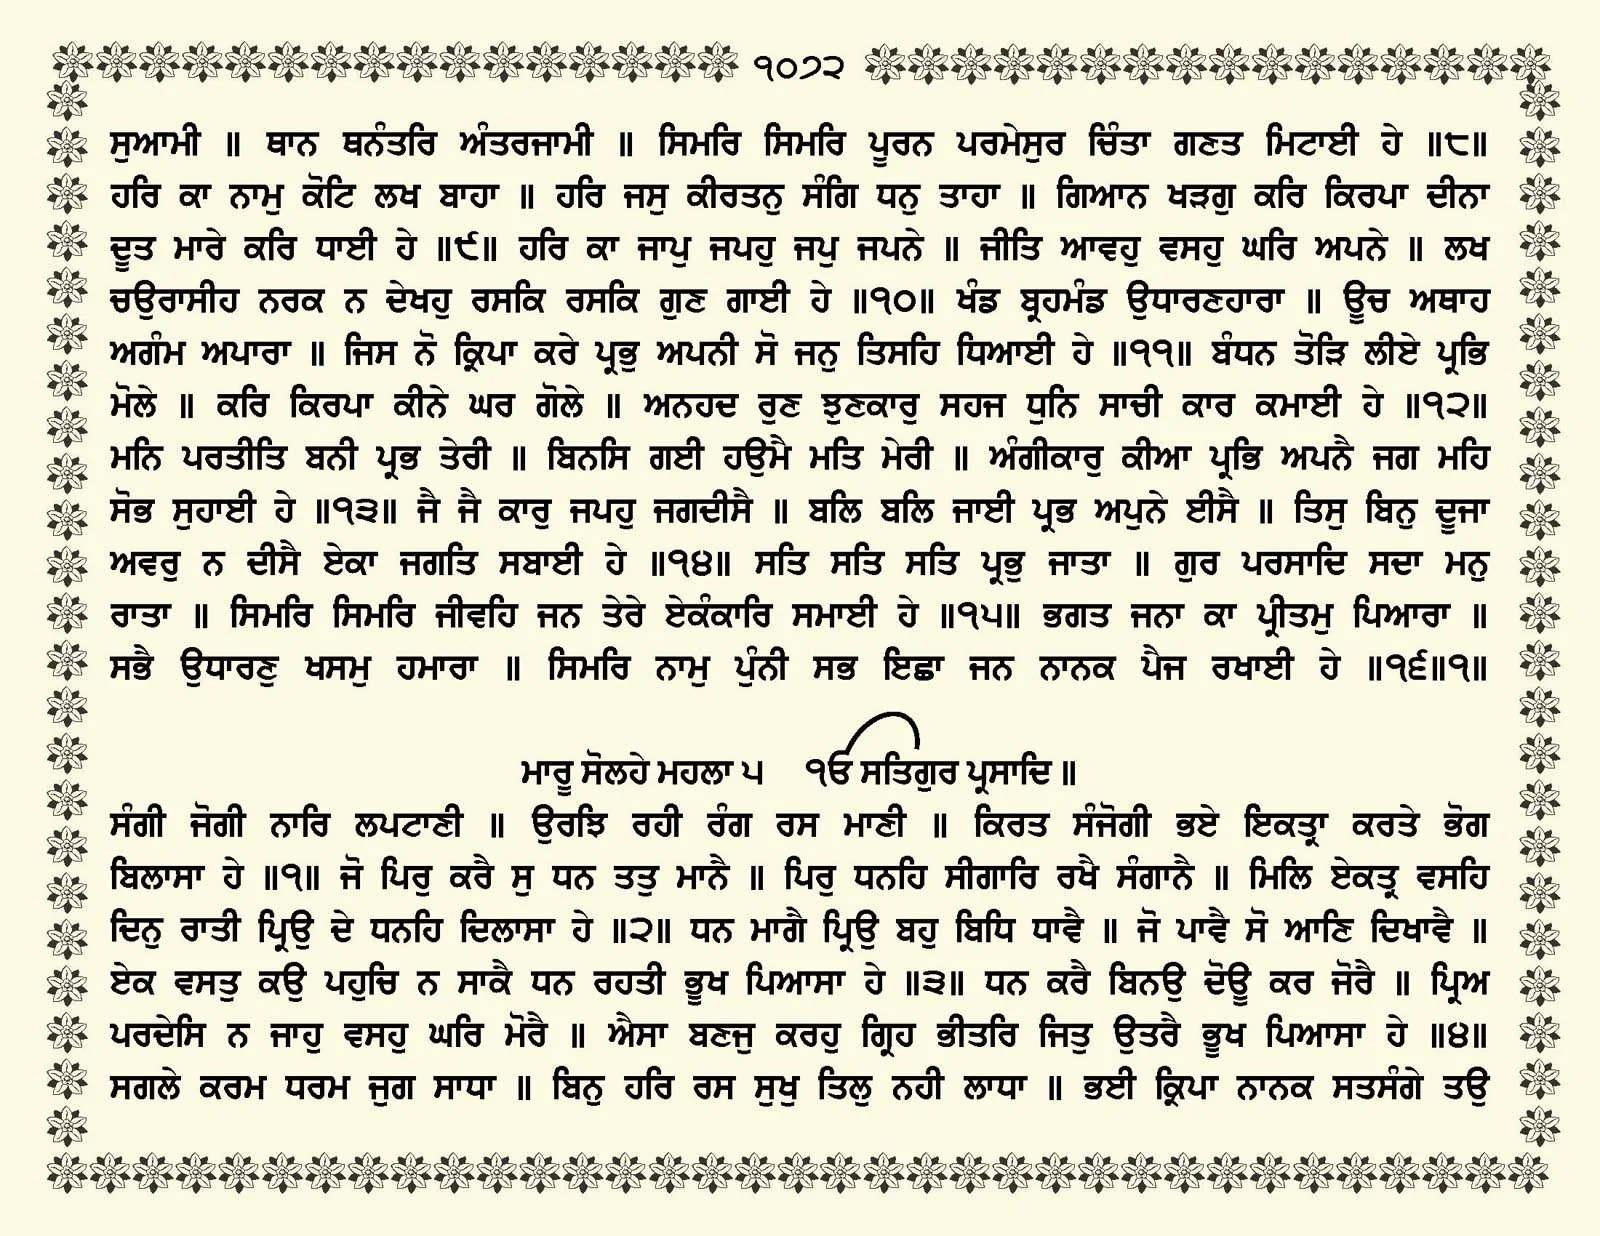 ੧੦੭੨
ਸੁਆਮੀ ॥ ਥਾਨ ਥਨੰਤਰਿ ਅੰਤਰਜਾਮੀ ॥ ਸਿਮਰਿ ਸਿਮਰਿ ਪੂਰਨ ਪਰਮੇਸੁਰ ਚਿੰਤਾ ਗਣਤ ਮਿਟਾਈ ਹੇ ॥੮॥
ਹਰਿ ਕਾ ਨਾਮੁ ਕੋਟਿ ਲਖ ਬਾਹਾ ॥ ਹਰਿ ਜਸੁ ਕੀਰਤਨੁ ਸੰਗਿ ਧਨੁ ਤਾਹਾ ॥ ਗਿਆਨ ਖੜਗੁ ਕਰਿ ਕਿਰਪਾ ਦੀਨਾ
ਦੂਤ ਮਾਰੇ ਕਰਿ ਧਾਈ ਹੇ ॥੯॥ ਹਰਿ ਕਾ ਜਾਪੁ ਜਪਹੁ ਜਪੁ ਜਪਨੇ ॥ ਜੀਤਿ ਆਵਹੁ ਵਸਹੁ ਘਰਿ ਅਪਨੇ ॥ ਲਖ
ਚਉਰਾਸੀਹ ਨਰਕ ਨ ਦੇਖਹੁ ਰਸਕਿ ਰਸਕਿ ਗੁਣ ਗਾਈ ਹੇ ॥੧੦॥ ਖੰਡ ਬ੍ਰਹਮੰਡ ਉਧਾਰਣਹਾਰਾ ॥ ਊਚ ਅਥਾਹ
ਅਗੰਮ ਅਪਾਰਾ ॥ ਜਿਸ ਨੋ ਕ੍ਰਿਪਾ ਕਰੇ ਪ੍ਰਭੁ ਅਪਨੀ ਸੋ ਜਨੁ ਤਿਸਹਿ ਧਿਆਈ ਹੇ ॥੧੧॥ ਬੰਧਨ ਤੋੜਿ ਲੀਏ ਪ੍ਰਭਿ
ਮੋਲੇ ॥ ਕਰਿ ਕਿਰਪਾ ਕੀਨੇ ਘਰ ਗੋਲੇ ॥ ਅਨਹਦ ਰੁਣ ਝੁਣਕਾਰੁ ਸਹਜ ਧੁਨਿ ਸਾਚੀ ਕਾਰ ਕਮਾਈ ਹੇ ॥੧੨॥
ਮਨਿ ਪਰਤੀਤਿ ਬਨੀ ਪ੍ਰਭ ਤੇਰੀ ॥ ਬਿਨਸਿ ਗਈ ਹਉਮੈ ਮਤਿ ਮੇਰੀ ॥ ਅੰਗੀਕਾਰੁ ਕੀਆ ਪ੍ਰਭਿ ਅਪਨੈ ਜਗ ਮਹਿ
ਸੋਭ ਸੁਹਾਈ ਹੇ ॥੧੩॥ ਜੈ ਜੈ ਕਾਰੁ ਜਪਹੁ ਜਗਦੀਸੈ ॥ ਬਲਿ ਬਲਿ ਜਾਈ ਪ੍ਰਭ ਅਪੁਨੇ ਈਸੈ ॥ ਤਿਸੁ ਬਿਨੁ ਦੂਜਾ
ਅਵਰੁ ਨ ਦੀਸੈ ਏਕਾ ਜਗਤਿ ਸਬਾਈ ਹੇ ॥੧੪॥ ਸਤਿ ਸਤਿ ਸਤਿ ਪ੍ਰਭੁ ਜਾਤਾ ॥ ਗੁਰ ਪਰਸਾਦਿ ਸਦਾ ਮਨੁ
ਰਾਤਾ ॥ ਸਿਮਰਿ ਸਿਮਰਿ ਜੀਵਹਿ ਜਨ ਤੇਰੇ ਏਕੰਕਾਰਿ ਸਮਾਈ ਹੇ ॥੧੫॥ ਭਗਤ ਜਨਾ ਕਾ ਪ੍ਰੀਤਮੁ ਪਿਆਰਾ ॥
ਸਭੈ ਉਧਾਰਣੁ ਖਸਮੁ ਹਮਾਰਾ ॥ ਸਿਮਰਿ ਨਾਮੁ ਪੁੰਨੀ ਸਭ ਇਛਾ ਜਨ ਨਾਨਕ ਪੈਜ ਰਖਾਈ ਹੇ ॥੧੬॥੧॥
ਮਾਰੂ ਸੋਲਹੇ ਮਹਲਾ ੫ ੴ ਸਤਿਗੁਰ ਪ੍ਰਸਾਦਿ ॥
ਸੰਗੀ ਜੋਗੀ ਨਾਰਿ ਲਪਟਾਣੀ ॥ ਉਰਝਿ ਰਹੀ ਰੰਗ ਰਸ ਮਾਣੀ ॥ ਕਿਰਤ ਸੰਜੋਗੀ ਭਏ ਇਕਤ੍ਰਾ ਕਰਤੇ ਭੋਗ
ਬਿਲਾਸਾ ਹੇ ॥੧॥ ਜੋ ਪਿਰੁ ਕਰੈ ਸੁ ਧਨ ਤਤੁ ਮਾਨੈ ॥ ਪਿਰੁ ਧਨਹਿ ਸੀਗਾਰਿ ਰਖੈ ਸੰਗਾਨੈ ॥ ਮਿਲਿ ਏਕਤ੍ਰ ਵਸਹਿ
ਦਿਨੁ ਰਾਤੀ ਪ੍ਰਿਉ ਦੇ ਧਨਹਿ ਦਿਲਾਸਾ ਹੇ ॥੨॥ ਧਨ ਮਾਗੈ ਪ੍ਰਿਉ ਬਹੁ ਬਿਧਿ ਧਾਵੈ ॥ ਜੋ ਪਾਵੈ ਸੋ ਆਣਿ ਦਿਖਾਵੈ ॥
ਏਕ ਵਸਤੁ ਕਉ ਪਹੁਚਿ ਨ ਸਾਕੈ ਧਨ ਰਹਤੀ ਭੂਖ ਪਿਆਸਾ ਹੇ ॥੩॥ ਧਨ ਕਰੈ ਬਿਨਉ ਦੋਊ ਕਰ ਜੋਰੈ ॥ ਪ੍ਰਿਅ
ਪਰਦੇਸਿ ਨ ਜਾਹੁ ਵਸਹੁ ਘਰਿ ਮੋਰੈ ॥ ਐਸਾ ਬਣਜੁ ਕਰਹੁ ਗ੍ਰਿਹ ਭੀਤਰਿ ਜਿਤੁ ਉਤਰੈ ਭੂਖ ਪਿਆਸਾ ਹੇ ॥੪॥
ਸਗਲੇ ਕਰਮ ਧਰਮ ਜੁਗ ਸਾਧਾ ॥ ਬਿਨੁ ਹਰਿ ਰਸ ਸੁਖੁ ਤਿਲੁ ਨਹੀ ਲਾਧਾ ॥ ਭਈ ਕ੍ਰਿਪਾ ਨਾਨਕ ਸਤਸੰਗੇ ਤਉ